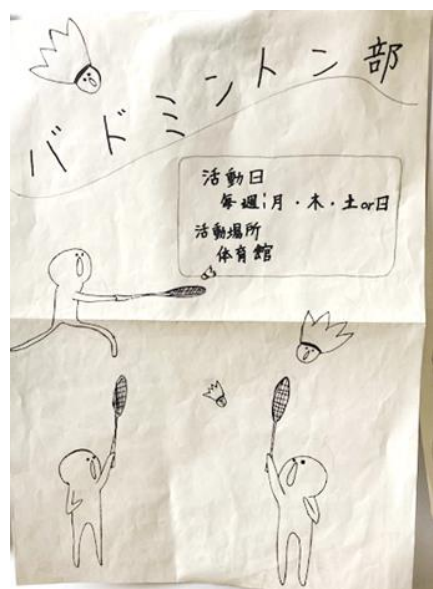 バドミントン部
活動日
毎週;月・木・土or日
活動場所
体育館